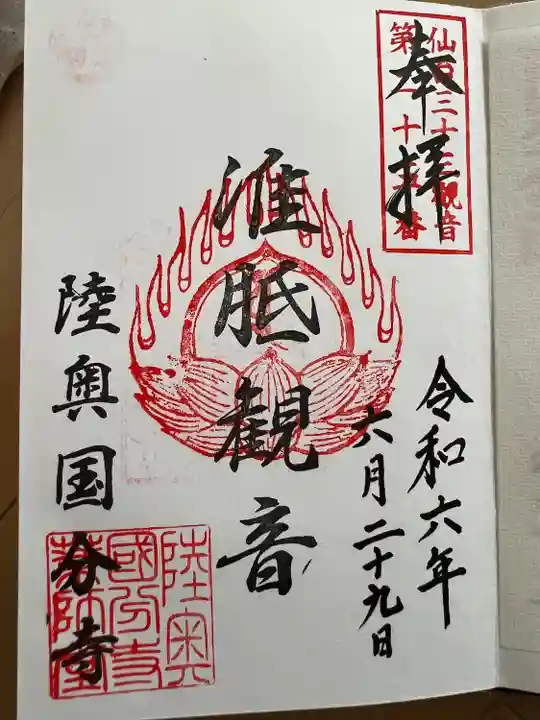 仙台三十三観音
第二十五番
奉拝
令和六年
六月二十九日
准胝觀音
陸奥国分寺
陸奥
國分寺
薬師堂